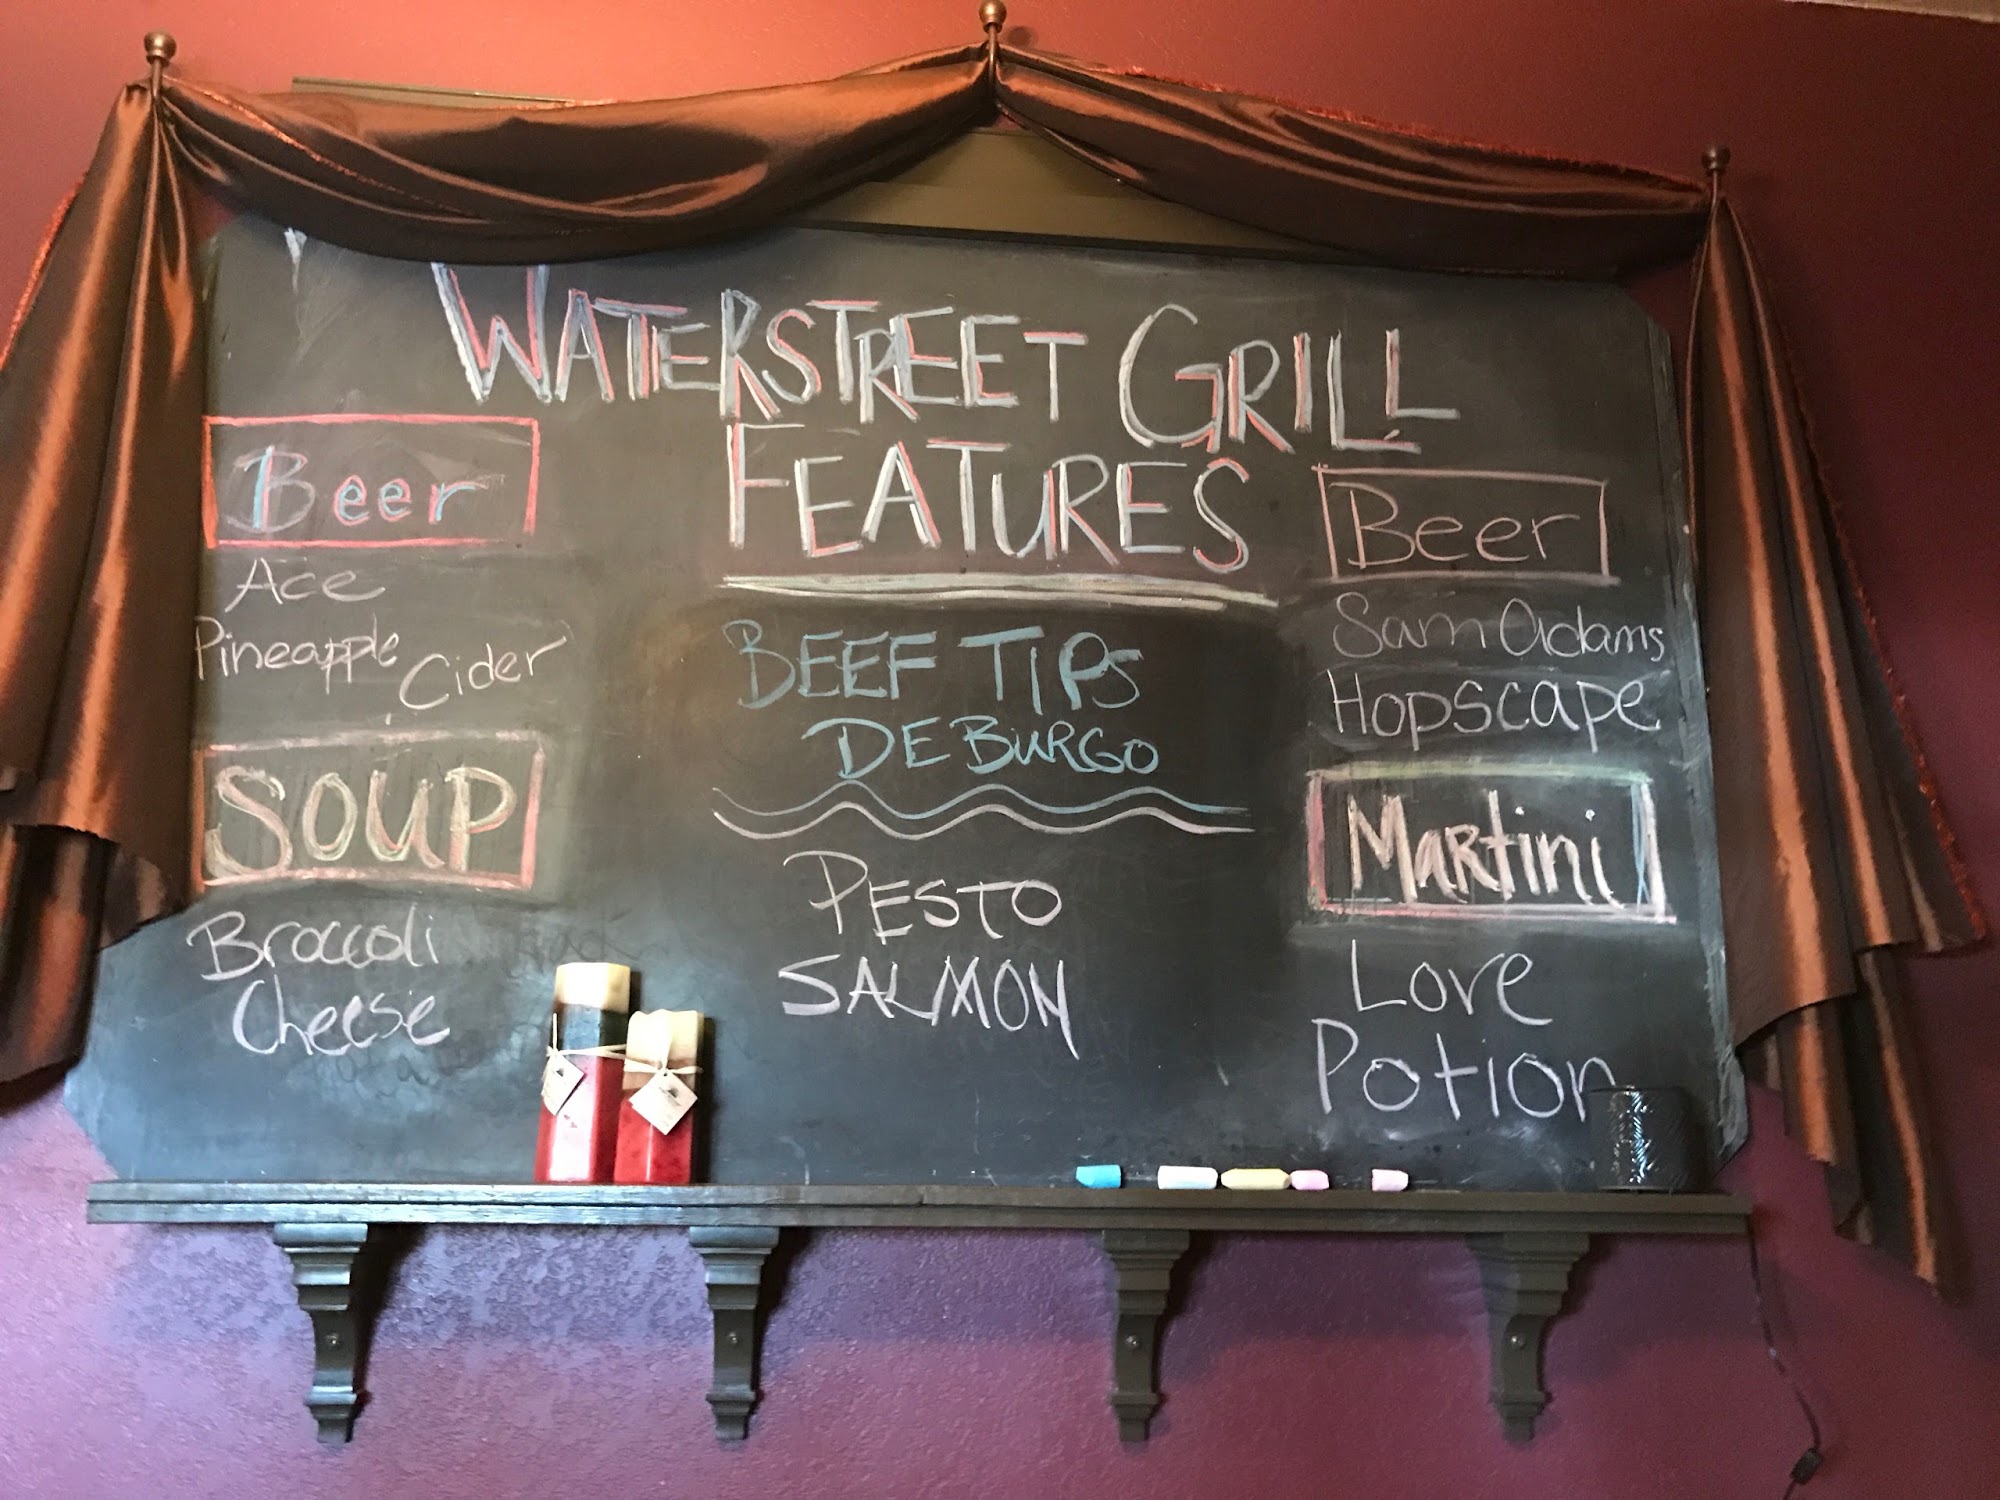 WATERSTREET GRILL
FEATURES
Beer
Ace
Pineapple Cider
SOUP
Broccoli
Cheese
BEEF TIPS
DE BURGO
PESTO
SALMON
Beer
Sam Adams
HOPSCAPE
Martini
Love
Potion